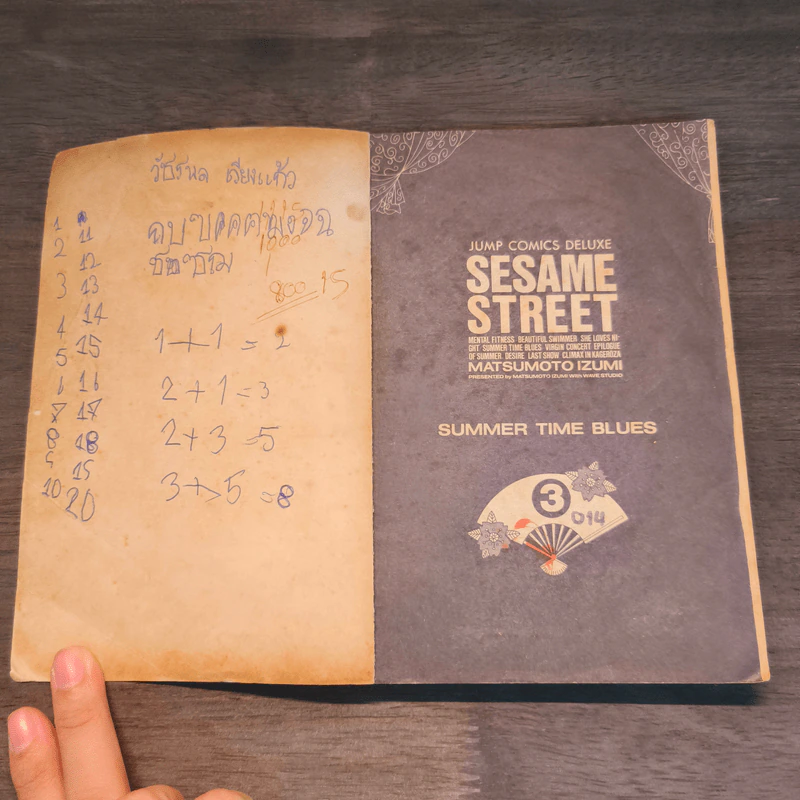 1
2
3
4
5
6
7
8
9
10
11
12
13
14
15
16
17
18
19
20
1000
800 15
1+1 = 2
2+1=3
2+3=5
3+5=8
JUMP COMICS DELUXE
SESAME
STREET
MENTAL FITNESS BEAUTIFUL SWIMMER SHE LOVES NI-
GHT SUMMER TIME BLUES VIRGIN CONCERT EPILOGUE
OF SUMMER DESIRE LAST SHOW CLIMAX IN KAGEROZA
MATSUMOTO IZUMI
PRESENTED by MATSUMOTO IZUMI With WAVE STUDIO
SUMMER TIME BLUES
3
014